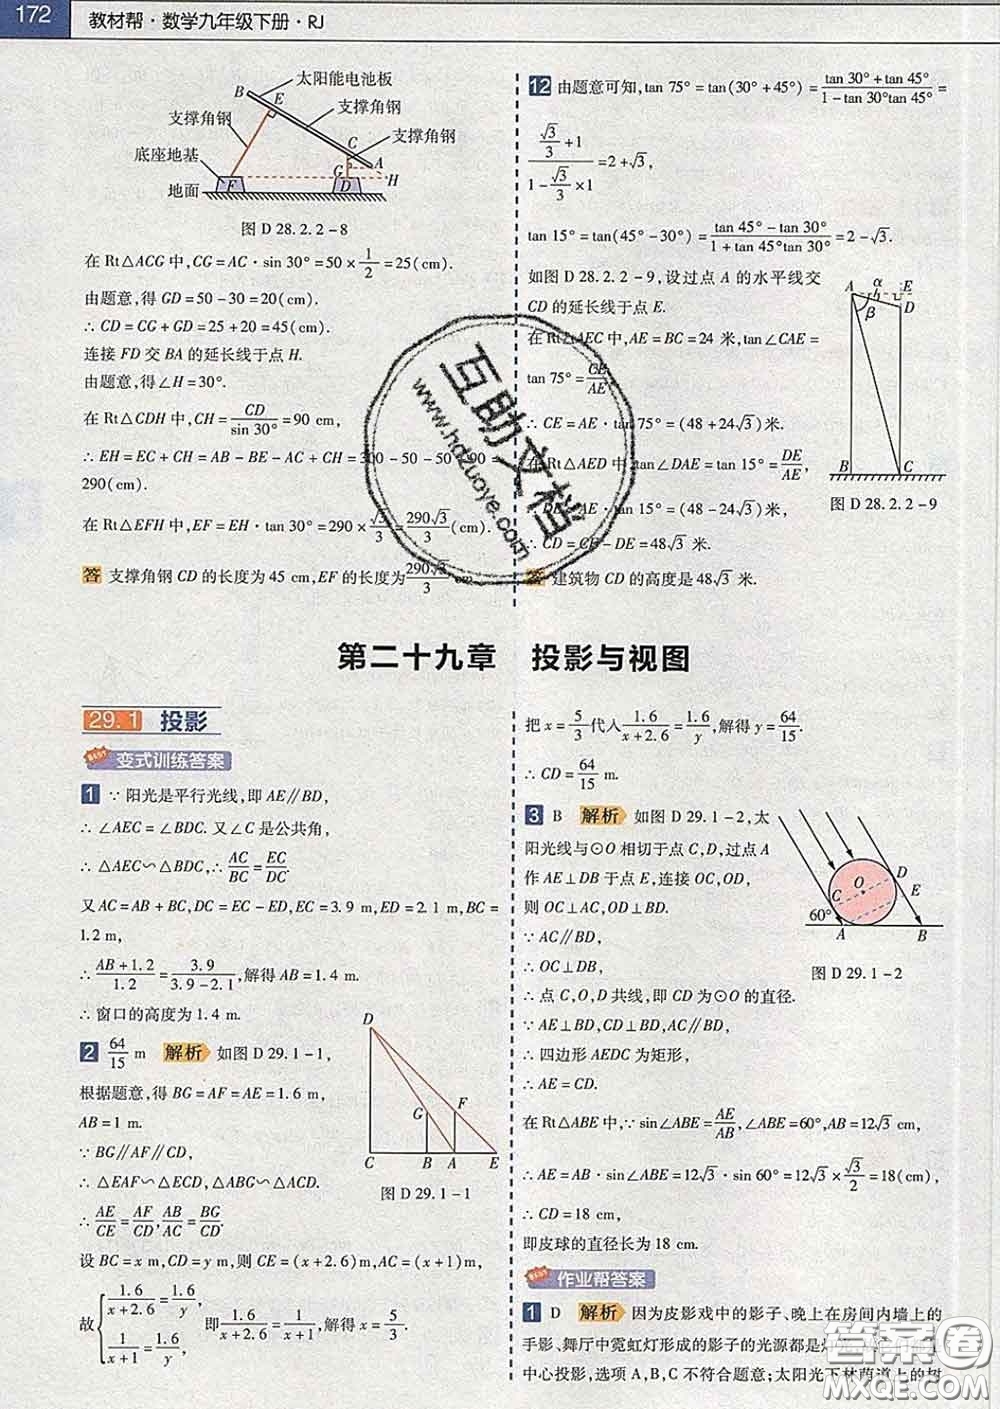 172 教材帮·数学九年级下册·RJ
太阳能电池板
支撑角钢
支撑角钢
支撑角钢
底座地基
地面
B E C A G H F D
图 D 28.2.2-8
在 Rt△ACG 中,CG=AC·sin 30°=50×1/2=25(cm).
由题意,得 GD=50-30=20(cm).
∴ CD=CG+GD=25+20=45(cm).
连接 FD 交 BA 的延长线于点 H.
由题意,得∠H=30°.
在 Rt△CDH 中,CH=CD/sin 30°=90 cm,
∴ EH=EC+CH=AB-BE-AC+CH=300-50-50+90=
290(cm).
在 Rt△EFH 中,EF=EH·tan 30°=290×√3/3=290√3/3(cm).
答 支撑角钢 CD 的长度为 45 cm,EF 的长度为290√3/3 cm.
12 由题意可知,tan 75°=tan(30°+45°)=(tan 30°+tan 45°)/(1-tan 30°tan 45°)=
(√3/3+1)/(1-√3/3×1)=2+√3,
tan 15°=tan(45°-30°)=(tan 45°-tan 30°)/(1+tan 45°tan 30°)=2-√3.
如图 D 28.2.2-9,设过点 A 的水平线交
CD 的延长线于点 E.
在 Rt△AEC 中,AE=BC=24 米,tan∠CAE=
tan 75°=CE/AE,
∴ CE=AE·tan 75°=(48+24√3)米.
在 Rt△AED 中,tan∠DAE=tan 15°=DE/AE,
∴ DE=AE·tan 15°=(48-24√3)米,
∴ CD=CE-DE=48√3 米.
答 建筑物 CD 的高度是 48√3 米.
A α E D β B C
图 D 28.2.2-9
第二十九章 投影与视图
29.1 投影
BEST 变式训练答案
1 ∵ 阳光是平行光线,即 AE∥BD,
∴ ∠AEC=∠BDC. 又∠C 是公共角,
∴ △AEC∽△BDC,∴AC/BC=EC/DC.
又 AC=AB+BC,DC=EC-ED,EC=3.9 m,ED=2.1 m,BC=
1.2 m,
∴ (AB+1.2)/1.2=3.9/(3.9-2.1),解得 AB=1.4 m.
∴ 窗口的高度为 1.4 m.
2 64/15 m 解析 如图 D 29.1-1,
根据题意,得 BG=AF=AE=1.6 m,
AB=1 m.
∵ BG∥AF∥CD,
∴ △EAF∽△ECD,△ABG∽△ACD.
∴ AE/CE=AF/CD,AB/AC=BG/CD.
D G F C B A E
图 D 29.1-1
设 BC=x m,CD=y m,则 CE=(x+2.6)m,AC=(x+1)m,
故{1.6/(x+2.6)=1.6/y, 1/(x+1)=1.6/y, 即1.6/(x+2.6)=1/(x+1),解得 x=5/3.
把 x=5/3代入1.6/(x+2.6)=1.6/y,解得 y=64/15.
∴ CD=64/15 m.
3 B 解析 如图 D 29.1-2,太
阳光线与⊙O 相切于点 C,D,过点 A
作 AE⊥DB 于点 E,连接 OC,OD,
则 OC⊥AC,OD⊥BD,
∵ AC∥BD,
∴ OC⊥BD,
∴ 点 C,O,D 共线,即 CD 为⊙O 的直径.
∵ AE⊥BD,CD⊥BD,AC∥BD,
∴ 四边形 AEDC 为矩形,
∴ AE=CD.
60° C O D E A B
图 D 29.1-2
在 Rt△ABE 中,∵ sin∠ABE=AE/AB,∠ABE=60°,AB=12√3 cm,
∴ AE=AB·sin∠ABE=12√3·sin 60°=12√3×√3/2=18(cm),
∴ CD=18 cm,
即皮球的直径长为 18 cm.
BEST 作业帮答案
1 D 解析 因为皮影戏中的影子、晚上在房间内墙上的
手影、舞厅中霓虹灯形成的影子的光源都是
中心投影,选项 A,B,C 不符合题意;太阳光下林荫道上的树
互助文档
www.hdzuoye.com
答案圈
MXQE.COM